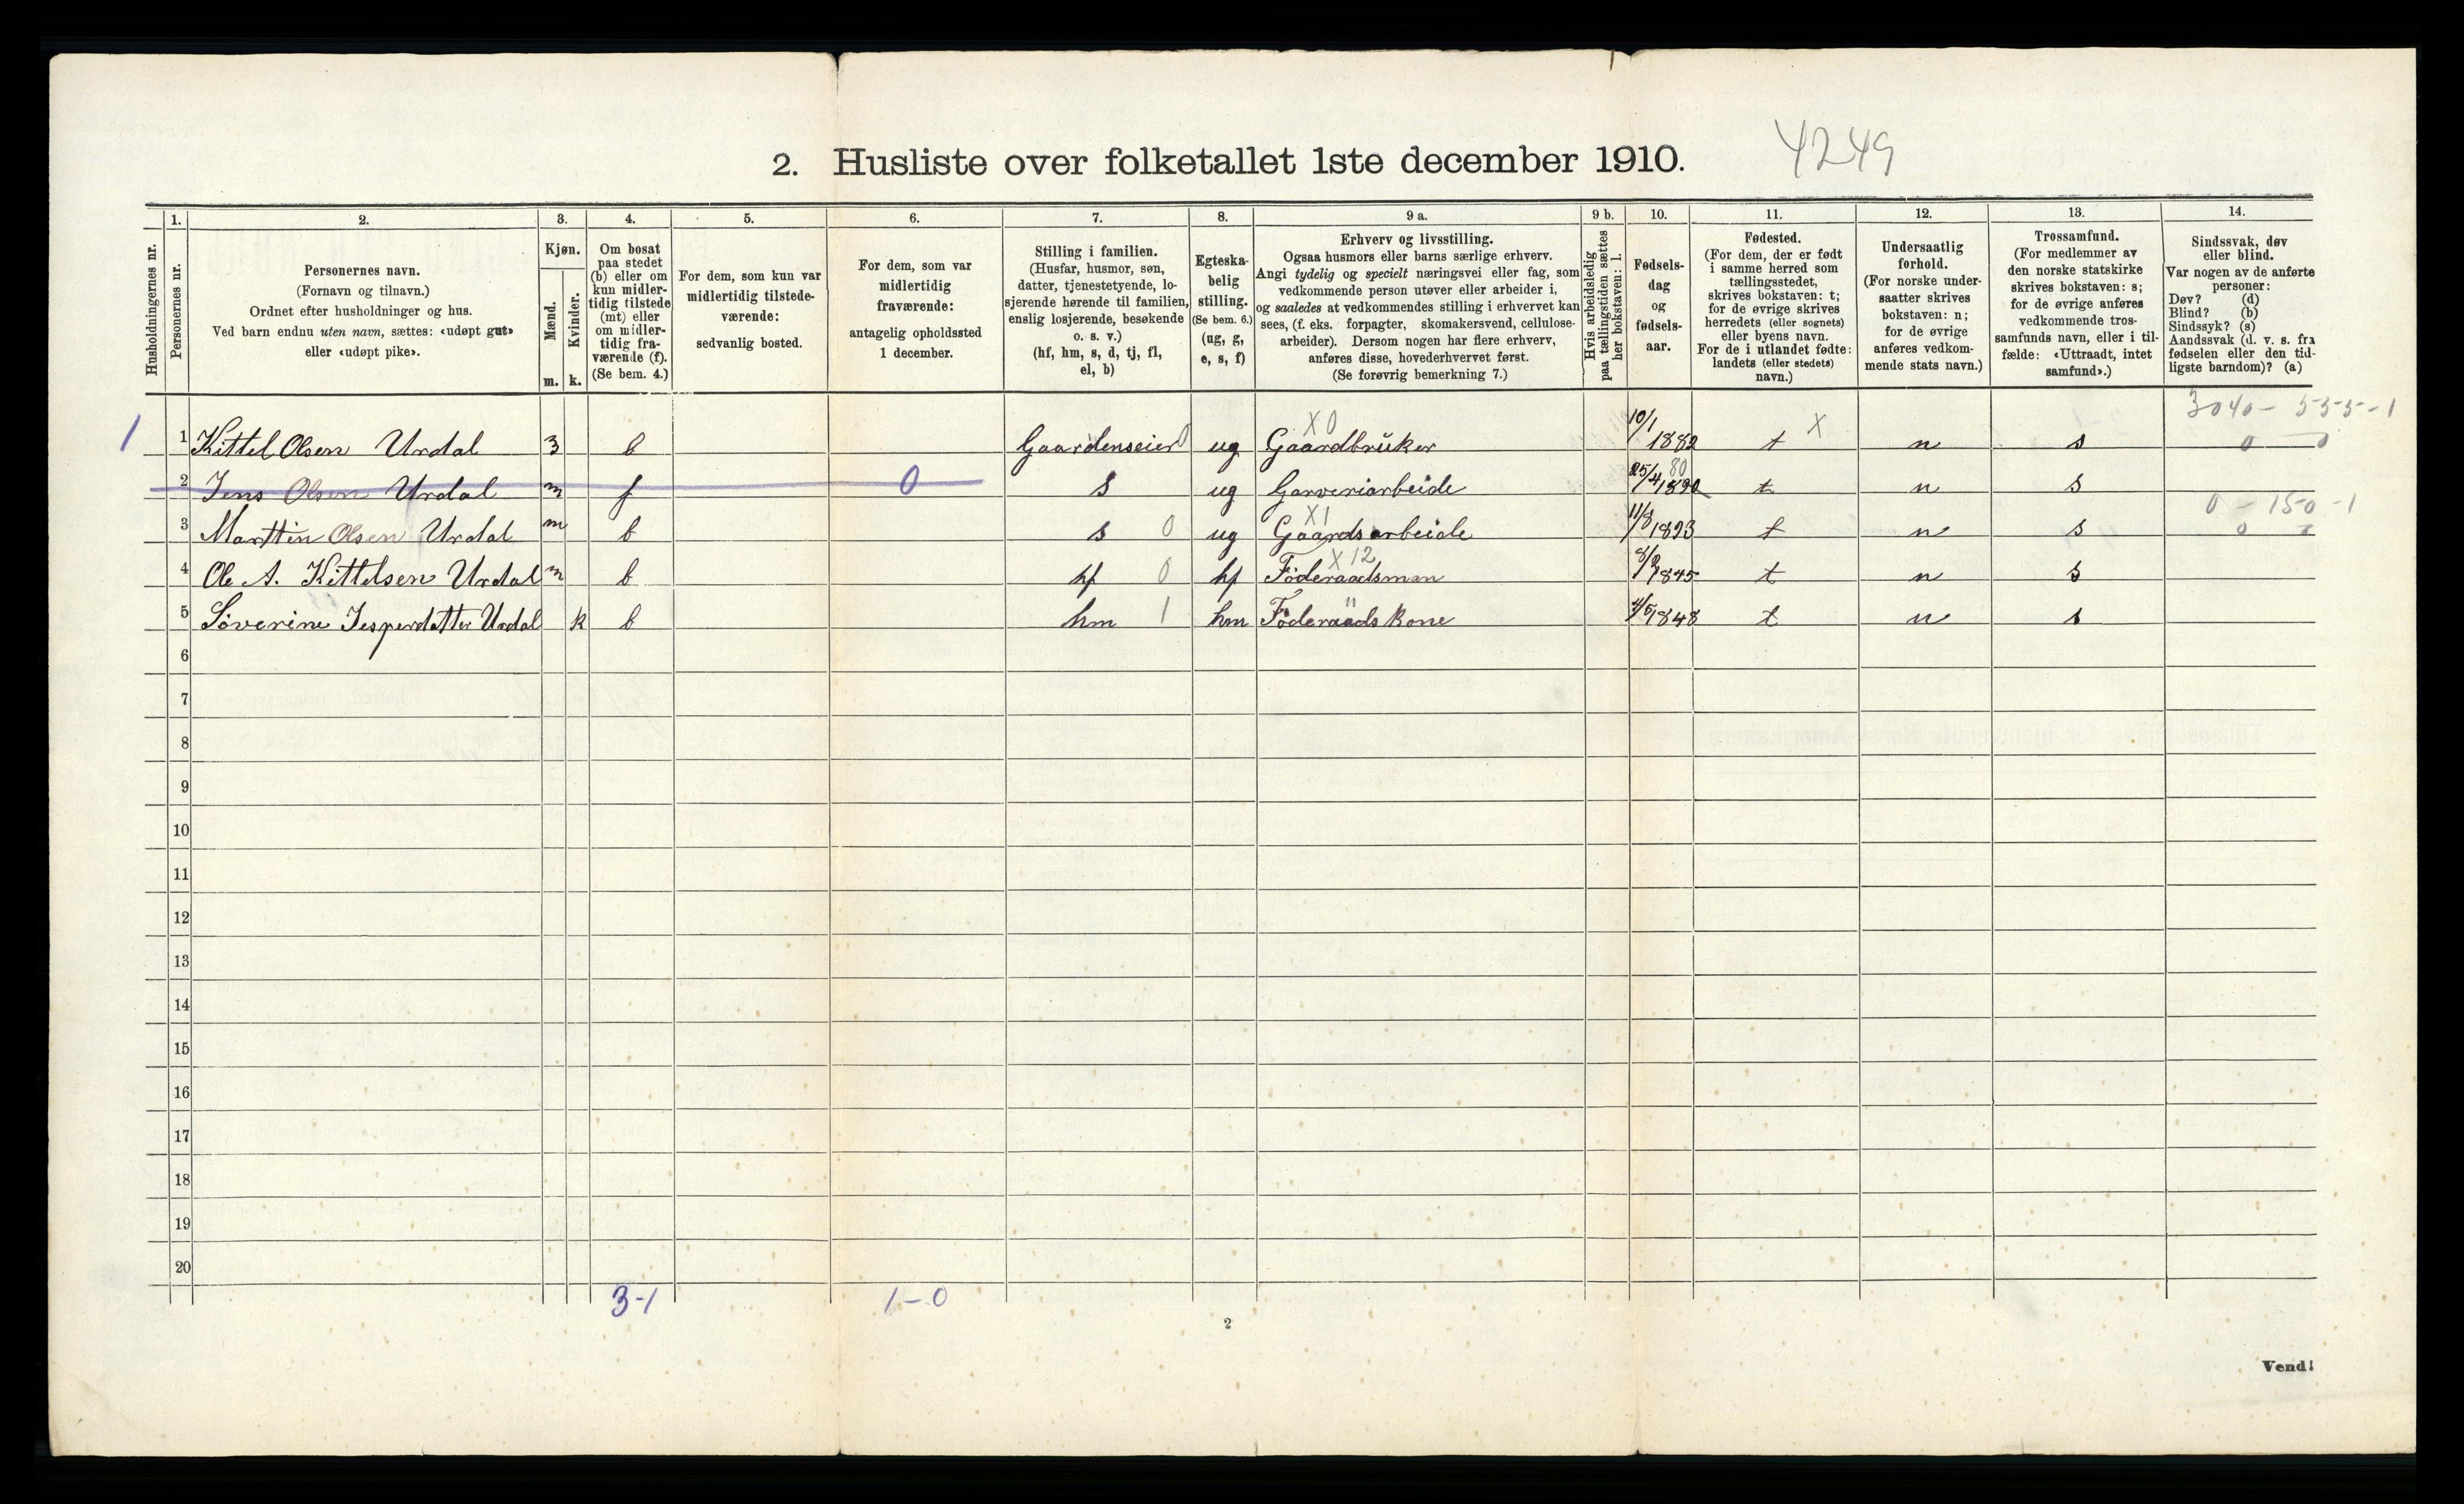 4249
2. Husliste over folketallet 1ste december 1910.
Husholdningernes nr.
1.
Personernes nr.
2.
Personernes navn.
(Fornavn og tilnavn.)
Ordnet efter husholdninger og hus.
Ved barn endnu uten navn, sættes: «udøpt gut»
eller «udøpt pike».
3.
Kjøn.
Mænd.
Kvinder.
m. k.
4.
Om bosat
paa stedet
(b) eller om
kun midler-
tidig tilstede
(mt) eller
om midler-
tidig fra-
værende (f).
(Se bem. 4.)
5.
For dem, som kun var
midlertidig tilstede-
værende:
sedvanlig bosted.
6.
For dem, som var
midlertidig
fraværende:
antagelig opholdssted
1 december.
7.
Stilling i familien.
(Husfar, husmor, søn,
datter, tjenestetyende, lo-
sjerende hørende til familien,
enslig losjerende, besøkende
o. s. v.)
(hf, hm, s, d, tj, fl,
el, b)
8.
Egteska-
belig
stilling.
(Se bem. 6.)
(ug, g,
e, s, f)
9 a.
Erhverv og livsstilling.
Ogsaa husmors eller barns særlige erhverv.
Angi tydelig og specielt næringsvei eller fag, som
vedkommende person utøver eller arbeider i,
og saaledes at vedkommendes stilling i erhvervet kan
sees, (f. eks. forpagter, skomakersvend, cellulose-
arbeider). Dersom nogen har flere erhverv,
anføres disse, hovederhvervet først.
(Se forøvrig bemerkning 7.)
9 b.
Hvis arbeidsledig
paa tællingstiden sættes
her bokstaven: l.
10.
Fødsels-
dag
og
fødsels-
aar.
11.
Fødested.
(For dem, der er født
i samme herred som
tællingsstedet,
skrives bokstaven: t;
for de øvrige skrives
herredets (eller sognets)
eller byens navn.
For de i utlandet fødte:
landets (eller stedets)
navn.)
12.
Undersaatlig
forhold.
(For norske under-
saatter skrives
bokstaven: n;
for de øvrige
anføres vedkom-
mende stats navn.)
13.
Trossamfund.
(For medlemmer av
den norske statskirke
skrives bokstaven: s;
for de øvrige anføres
vedkommende tros-
samfunds navn, eller i til-
fælde: «Uttraadt, intet
samfund».)
14.
Sindssvak, døv
eller blind.
Var nogen av de anførte
personer:
Døv? (d)
Blind? (b)
Sindssyk? (s)
Aandssvak (d. v. s. fra
fødselen eller den tid-
ligste barndom)? (a)
X0 3040 - 555-1
1 1 Kittel Olsen Urdal 3 b Gaardenseier 0 ug Gaardbruker 10/1 1882 t X n s 0 0
2 Jens Olsen Urdal m f 0 s ug Garveriarbeide 25/4 1890 80 t n s
X1 0 - 150-1
3 Marttin Olsen Urdal m b s 0 ug Gaardsarbeide 11/8 1893 t n s 0
X12
4 Ole A. Kittelsen Urdal m b hf 0 hf Föderaadsman 8/9 1845 t n s
5 Söverine Jesperdatter Urdal k b hm 1 hm Föderaadskone 4/5 1848 t n s
6
7
8
9
10
11
12
13
14
15
16
17
18
19
20
3-1 1-0
2
Vend!